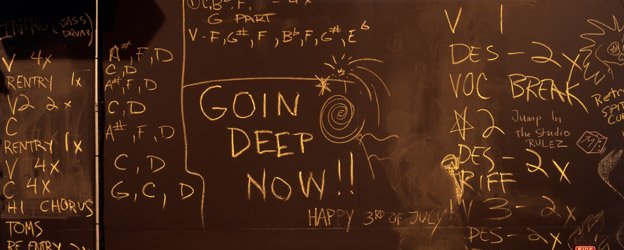 INTRO (BASS)
DRUMZ
V 4x
RENTRY 1x
V2 2x
C
RENTRY 1x
V 4x
C 4x
HI CHORUS
TOMS
RE ENTRY
A#, F, D
C, D
A#, F, D
C, D
A#, F, D
C, D
G, C, D
G PART
V - F, G#, F, Bb, F, G#, Eb
GOIN
DEEP
NOW!!
HAPPY 3RD OF JULY
V 1
DES - 2x
VOC BREAK
2
DES - 2x
RIFF
V 3 - 2x
DES - 2x
Jump In
the Studio
RULEZ